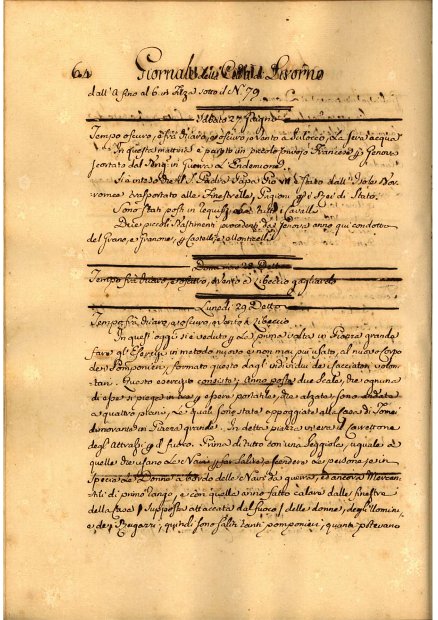 64 Giornale della Città di Livorno
dall' A fino al 6 in Alza sotto il N. 79
Sabato 27 Giugno
Tempo oscuro, e frà chiaro, e oscuro, e Vento a Scilocco, e la sera acqua
In questa mattina è partito un piccolo Convojo Francese p Genova
scortato dal in Guerra L'Endemione
Si è inteso che il S. Padre Papa Pio VII è stato dall' Isola Bor
romea trasportato alle Finestrelle, Prigioni p i Rei di Stato.
Sono stati posti in requisizione tutti i Cavalli
Due piccoli Bastimenti procedenti da Genova anno qui condotto
del Grano, e Granone, p
Domenica 28 Detto
Tempo frà chiaro, e oscuro, e vento a Libeccio gagliardo
Lunedì 29 Detto
Tempo frà chiaro, e oscuro, e vento a Libeccio
In quest'oggi si è veduto p la prima volta in Piazza grande
fare gl'Esercizi in metodo nuovo e non mai più usato, al nuovo Corpo
de Pomponieri, formato questo dagl' individui de facciatori volon
tari. Questo esercizio consiste; Anno posto due Scale, che ognuna
di esse si piega in tre p essere portatile, che alzate sono
a quattro piani, le quali sono state appoggiate alla Casa di
dimorante in Piazza Grande. In detta piazza vi era il Carrettone
degl' Attrazzi p il fuoco. Prima di tutto con una Seggiola, uguale a
quelle che usano le Navi p far salire, e scendere le persone, se in
specie le Donne a bordo delle Navi da guerra, ed ancora Mercan
tili di primo rango, e con quella anno fatto calare dalle finestre
della Casa / supposta attaccata dal fuoco / delle donne, degl' Uomini,
e de' Ragazzi, quindi sono saliti tanti pomponieri, quanti potevano